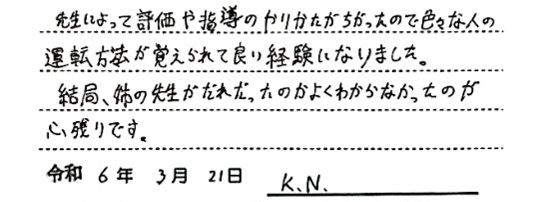 先生によって評価や指導のやりかたがちがったので色々な人の
運転方法が覚えられて良い経験になりました。
結局、姉の先生がだれだったのかよくわからなかったのが
心残りです。
令和 6年 3月 21日 K.N.